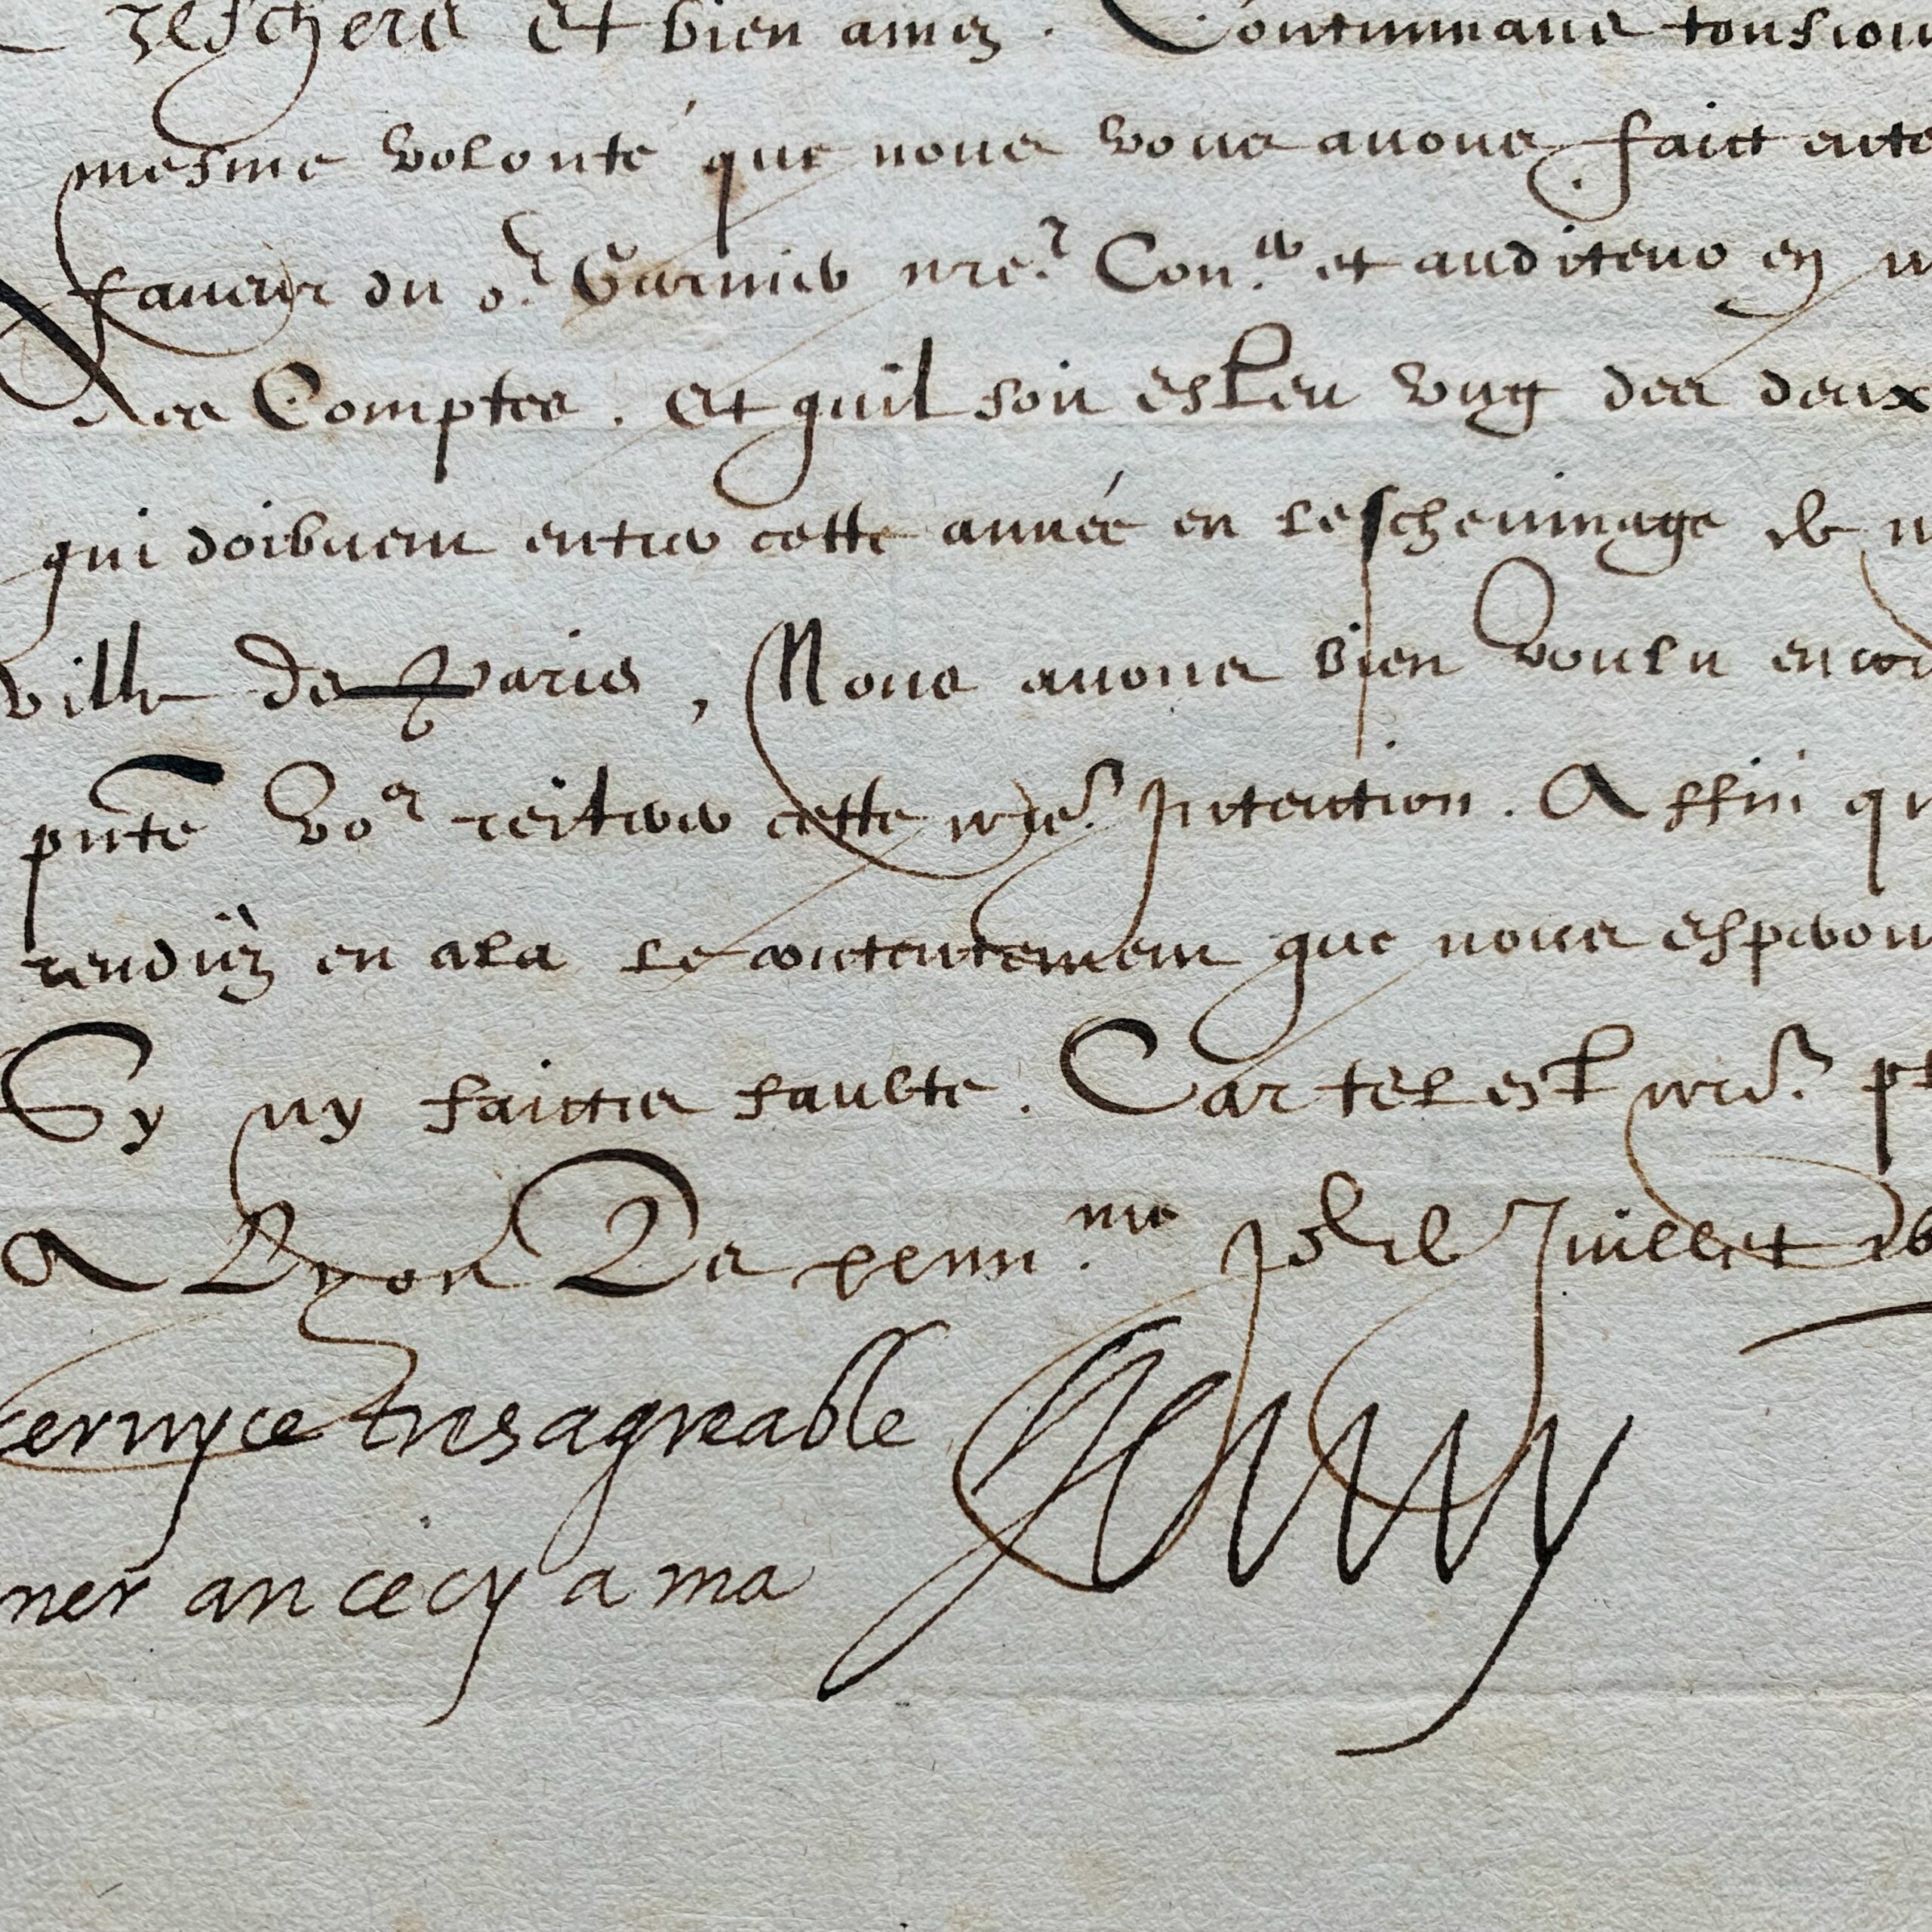 Treschers et bien amez. Continuans tousiou
mesme volonté que nous vous auons faict ente
faueur du sr Garnier nre Coner et auditeur en n
des Comptes. Et quil soit esleu vng des deux
qui doibuent entrer cette année en lescheuinage de n
ville de Paris, Nous auons bien voulu encor
pnte vos reiterer cette nre Intention. Affin qu
rendiez en cela le contentement que nous esperon
Sy ny faictes faulte. Car tel est nre pl
A Lyon Le Jor de Juillet 16
seruyce tresagreable Henry
ner an cecy a ma